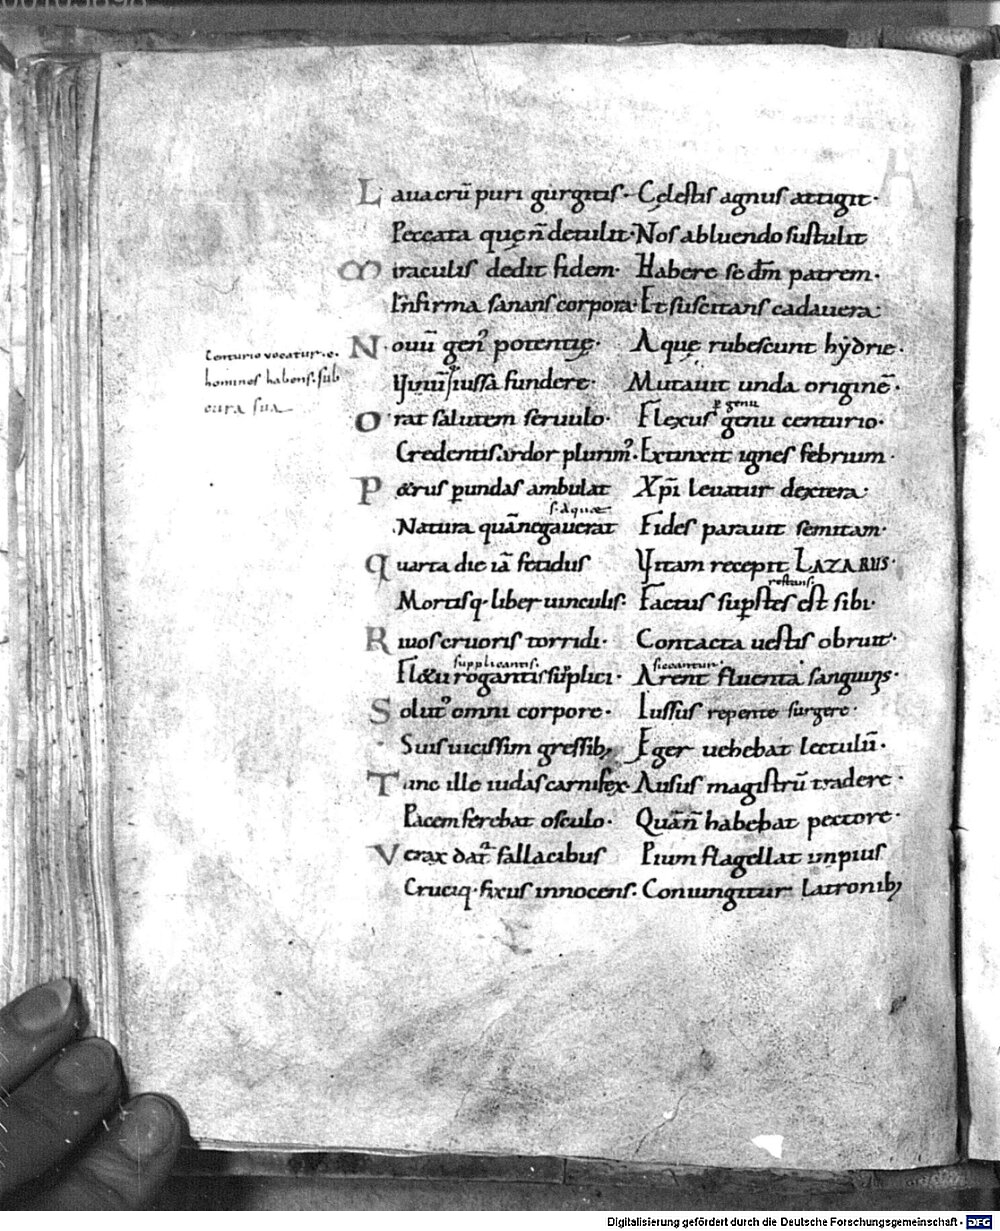 Lauacrū puri gurgitis· Cęlestis agnus attigit·
Peccata quę n̄ detulit· Nos abluendo sustulit
Miraculis dedit fidem· Habere se dm̄ patrem·
Infirma sanans corpora· Et suscitans cadauera·
Nouū genꝰ potentię· Aquę rubescunt hẏdrie·
centurio vocatur·
homines habens· sub
cura sua
Vinūq iussa fundere· Mutauit unda originē·
ꝑ genu
Orat salutem seruulo· Flexus genu centurio·
Credentis ardor plurimꝰ· Extinxit ignes febrium·
P&rus ꝑ undas ambulat Xp̄i leuatur dextera·
s· aquae
Natura quā negauerat Fides parauit semitam·
Quarta die iā fetidus Vitam recepit LAZARUS·
restans·
Mortisq· liber uinculis· Factus supstes est sibi·
Riuos cruoris torridi· Contacta uestis obruit·
supplicantis· siccantur·
Fl&u rogantis supplici· Arent fluenta sanguinis·
Solutꝰ omni corpore· Iussus repente surgere·
Suis uicissim gressib; Eger uehebat lectulū·
Tunc ille iudas carnifex· Ausus magistrū tradere·
Pacem ferebat osculo· Quā n̄ habebat pectore·
Verax dat᷑ fallacibus Pium flagellat impius
Cruciq· fixus innocens· Coniungitur latronib;
Digitalisierung gefördert durch die Deutsche Forschungsgemeinschaft - DFG